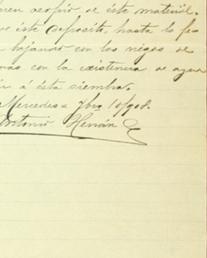 acopio de este material.
este deposito, hasta la fe
bajando con los riegos de
mas con la existencia de agua
á ésta siembra.
Mercedes 7bre 10/908.
Antonio Hernán